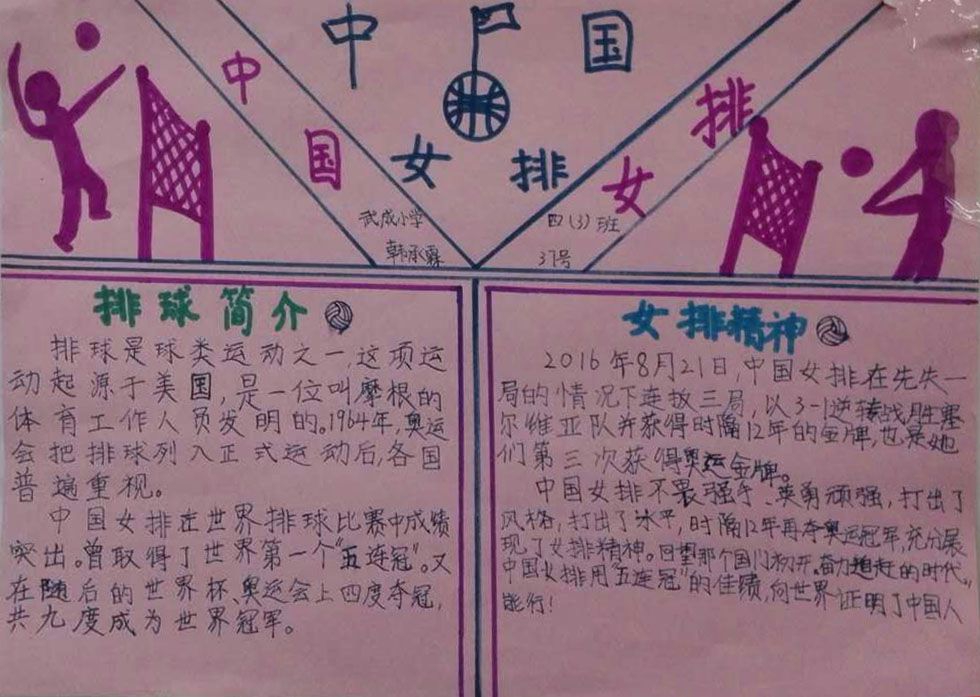 中国
中国女排
女排
武成小学
四(3)班
韩承霖
37号
排球简介
排球是球类运动之一,这项运
动起源于美国,是一位叫摩根的
体育工作人员发明的。1964年,奥运
会把排球列入正式运动后,各国
普遍重视。
中国女排在世界排球比赛中成绩
突出。曾取得了世界第一个"五连冠"。又
在随后的世界杯、奥运会上四度夺冠,
共九度成为世界冠军。
女排精神
2016年8月21日,中国女排在先失一
局的情况下连扳三局,以3-1逆转战胜塞
尔维亚队并获得时隔12年的金牌,也是她
们第三次获得奥运金牌。
中国女排不畏强手、英勇顽强,打出了
风格,打出了水平,时隔12年再夺奥运冠军,充分展
现了女排精神。回望那个国门初开、奋力追赶的时代。
中国女排用"五连冠"的佳绩,向世界证明了中国人
能行!